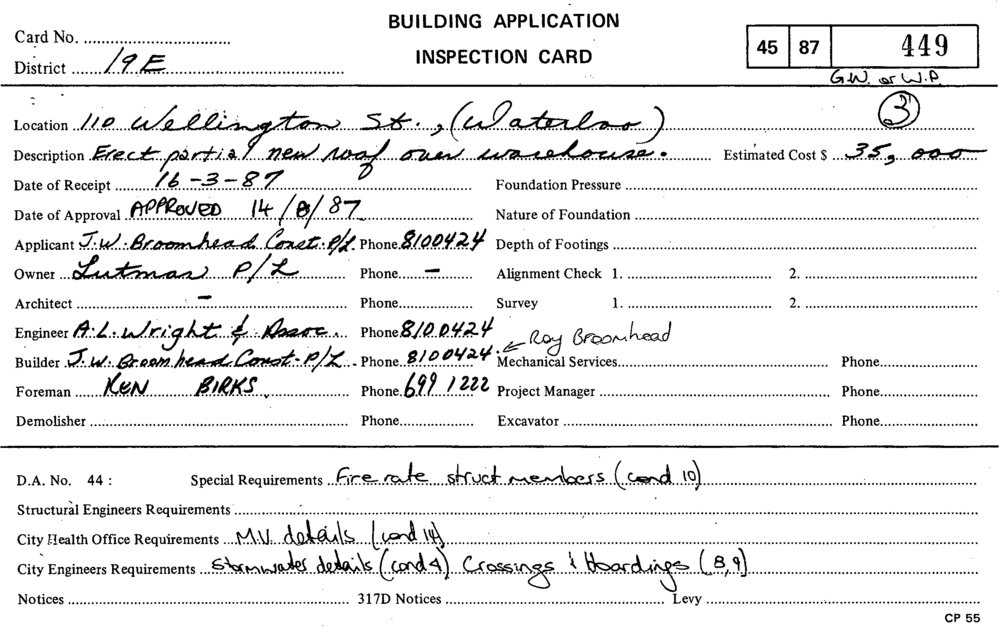 BUILDING APPLICATION
INSPECTION CARD
Card No.
District 19E
45 87 449
G.W. or W.P.
3
Location 110 Wellington St., (Waterloo)
Description Erect partial new roof over warehouse. Estimated Cost $ 35,000
Date of Receipt 16-3-87 Foundation Pressure
Date of Approval APPROVED 14/8/87 Nature of Foundation
Applicant J.W. Broomhead Const. P/L Phone 8100424 Depth of Footings
Owner Lutmas P/L Phone – Alignment Check 1. 2.
Architect – Phone Survey 1. 2.
Engineer A.L. Wright & Assoc. Phone 8100424
← Roy Broomhead
Builder J.W. Broomhead Const. P/L Phone 8100424 Mechanical Services Phone
Foreman KEN BIRKS Phone 699 1222 Project Manager Phone
Demolisher Phone Excavator Phone
D.A. No. 44 : Special Requirements Fire rate struct members (cond 10)
Structural Engineers Requirements
City Health Office Requirements M.V. details (cond 14)
City Engineers Requirements Stormwater details (cond 4) Crossings & Hoardings (8,9)
Notices 317D Notices Levy
CP 55